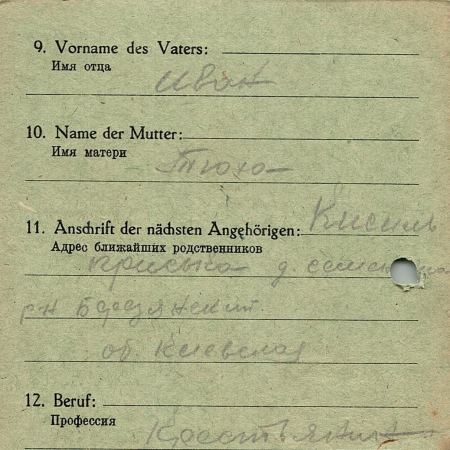 9. Vorname des Vaters:
Имя отца
Иван
10. Name der Mutter:
Имя матери
11. Anschrift der nächsten Angehörigen: Кисиль
Адрес ближайших родственников
Приська д.
рн Березянский
об. Киевская
12. Beruf:
Профессия
Крестьянин